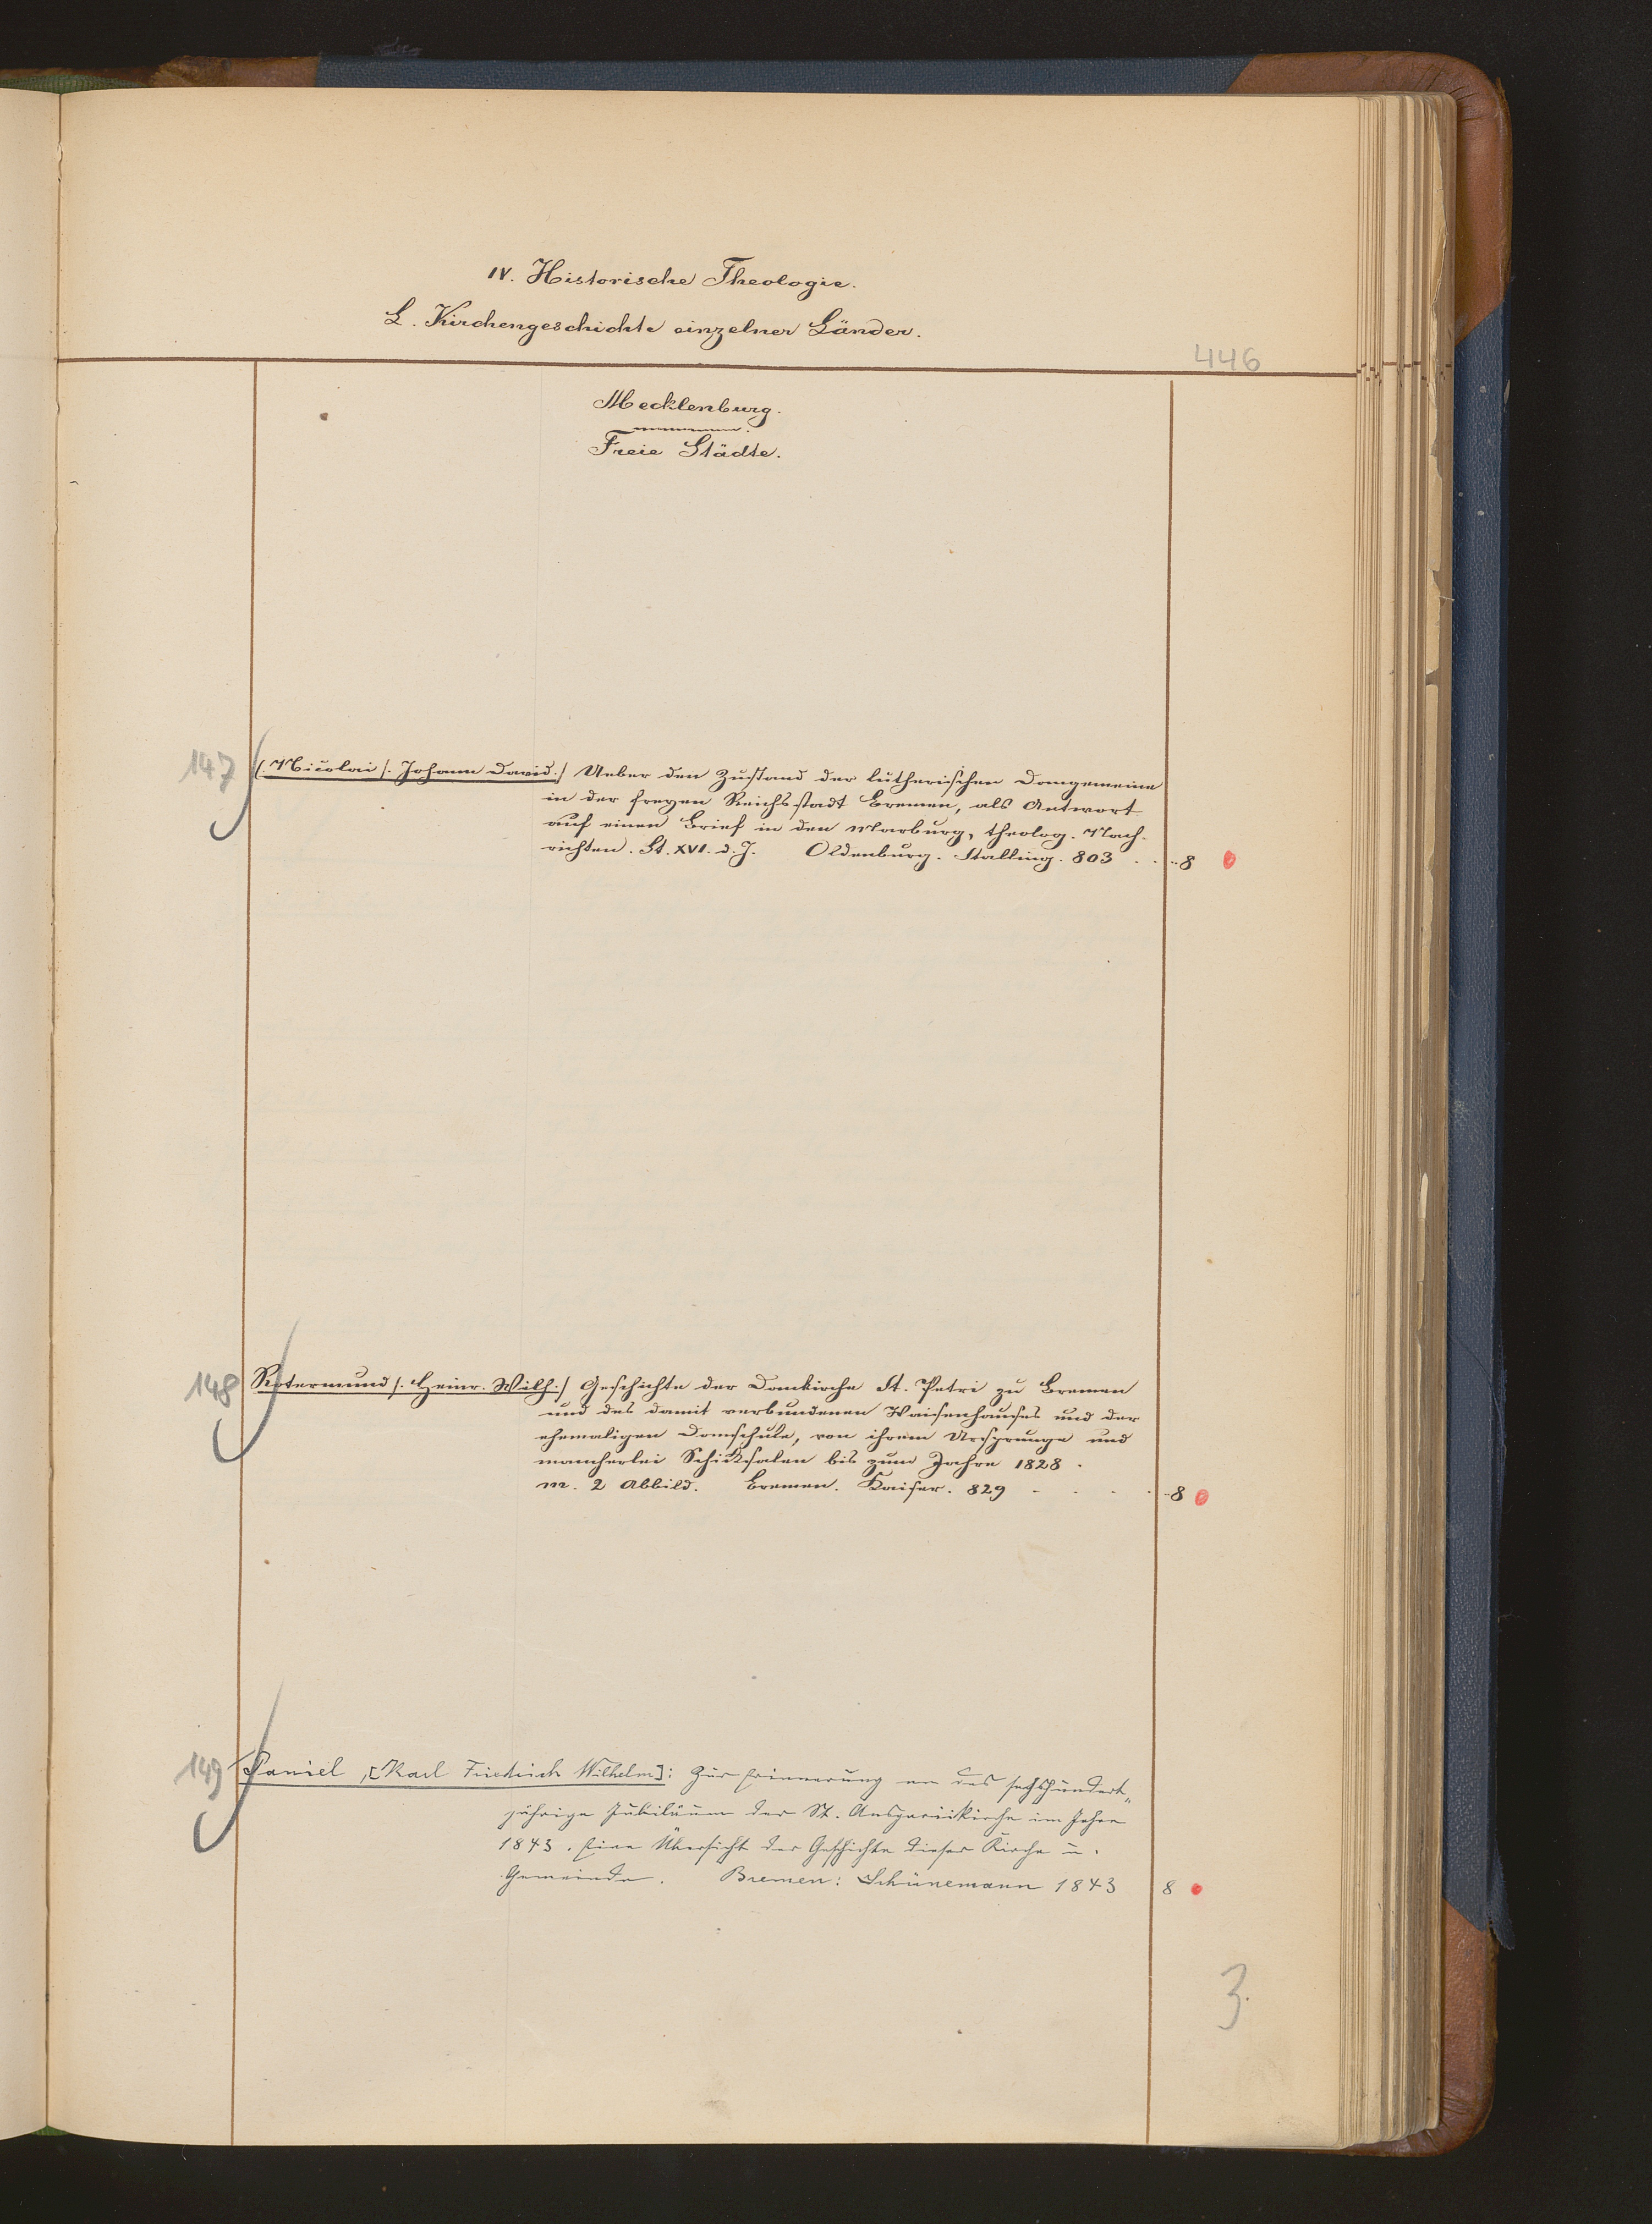 IV. Historische Theologie.
L. Kirchengeschichte einzelner Länder.
446
Mecklenburg.
Freie Städte.
147 (Nicolai /. Johann David./ Ueber den Zustand der lutherischen Domgemeine
in der freyen Reichsstadt Bremen, als Antwort
auf einen Brief in den Marburg, theolog. Nach-
richten. St. XVI. d. J. Oldenburg. Stalling. 803 . . .. 8
148 Rotermund /. Heinr. Wilh./ Geschichte der Domkirche St. Petri zu Bremen
und des damit verbundenen Waisenhauses und der
ehemaligen Domschule, von ihrem Ursprunge und
mancherlei Schicksalen bis zum Jahre 1828.
m. 2 Abbild. Bremen. Kaiser. 829 . . . . .. 8
149 Paniel, [Karl Friedrich Wilhelm]: Zur Erinnerung an das sechshundert„
jährige Jubiläum der St. Ansgariikirche im Jahre
1843. Eine Übersicht der Geschichte dieser Kirche u.
Gemeinde. Bremen: Schünemann 1843 8
3.